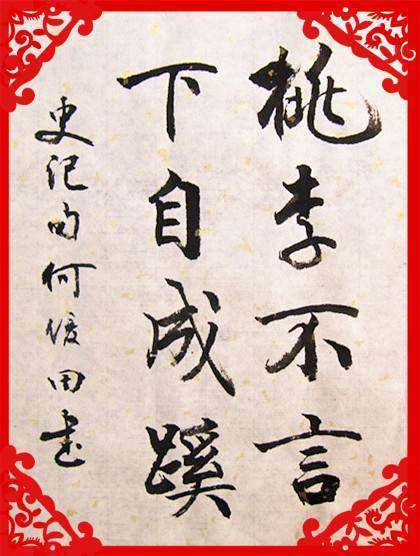 桃李不言
下自成蹊
史记句何田书